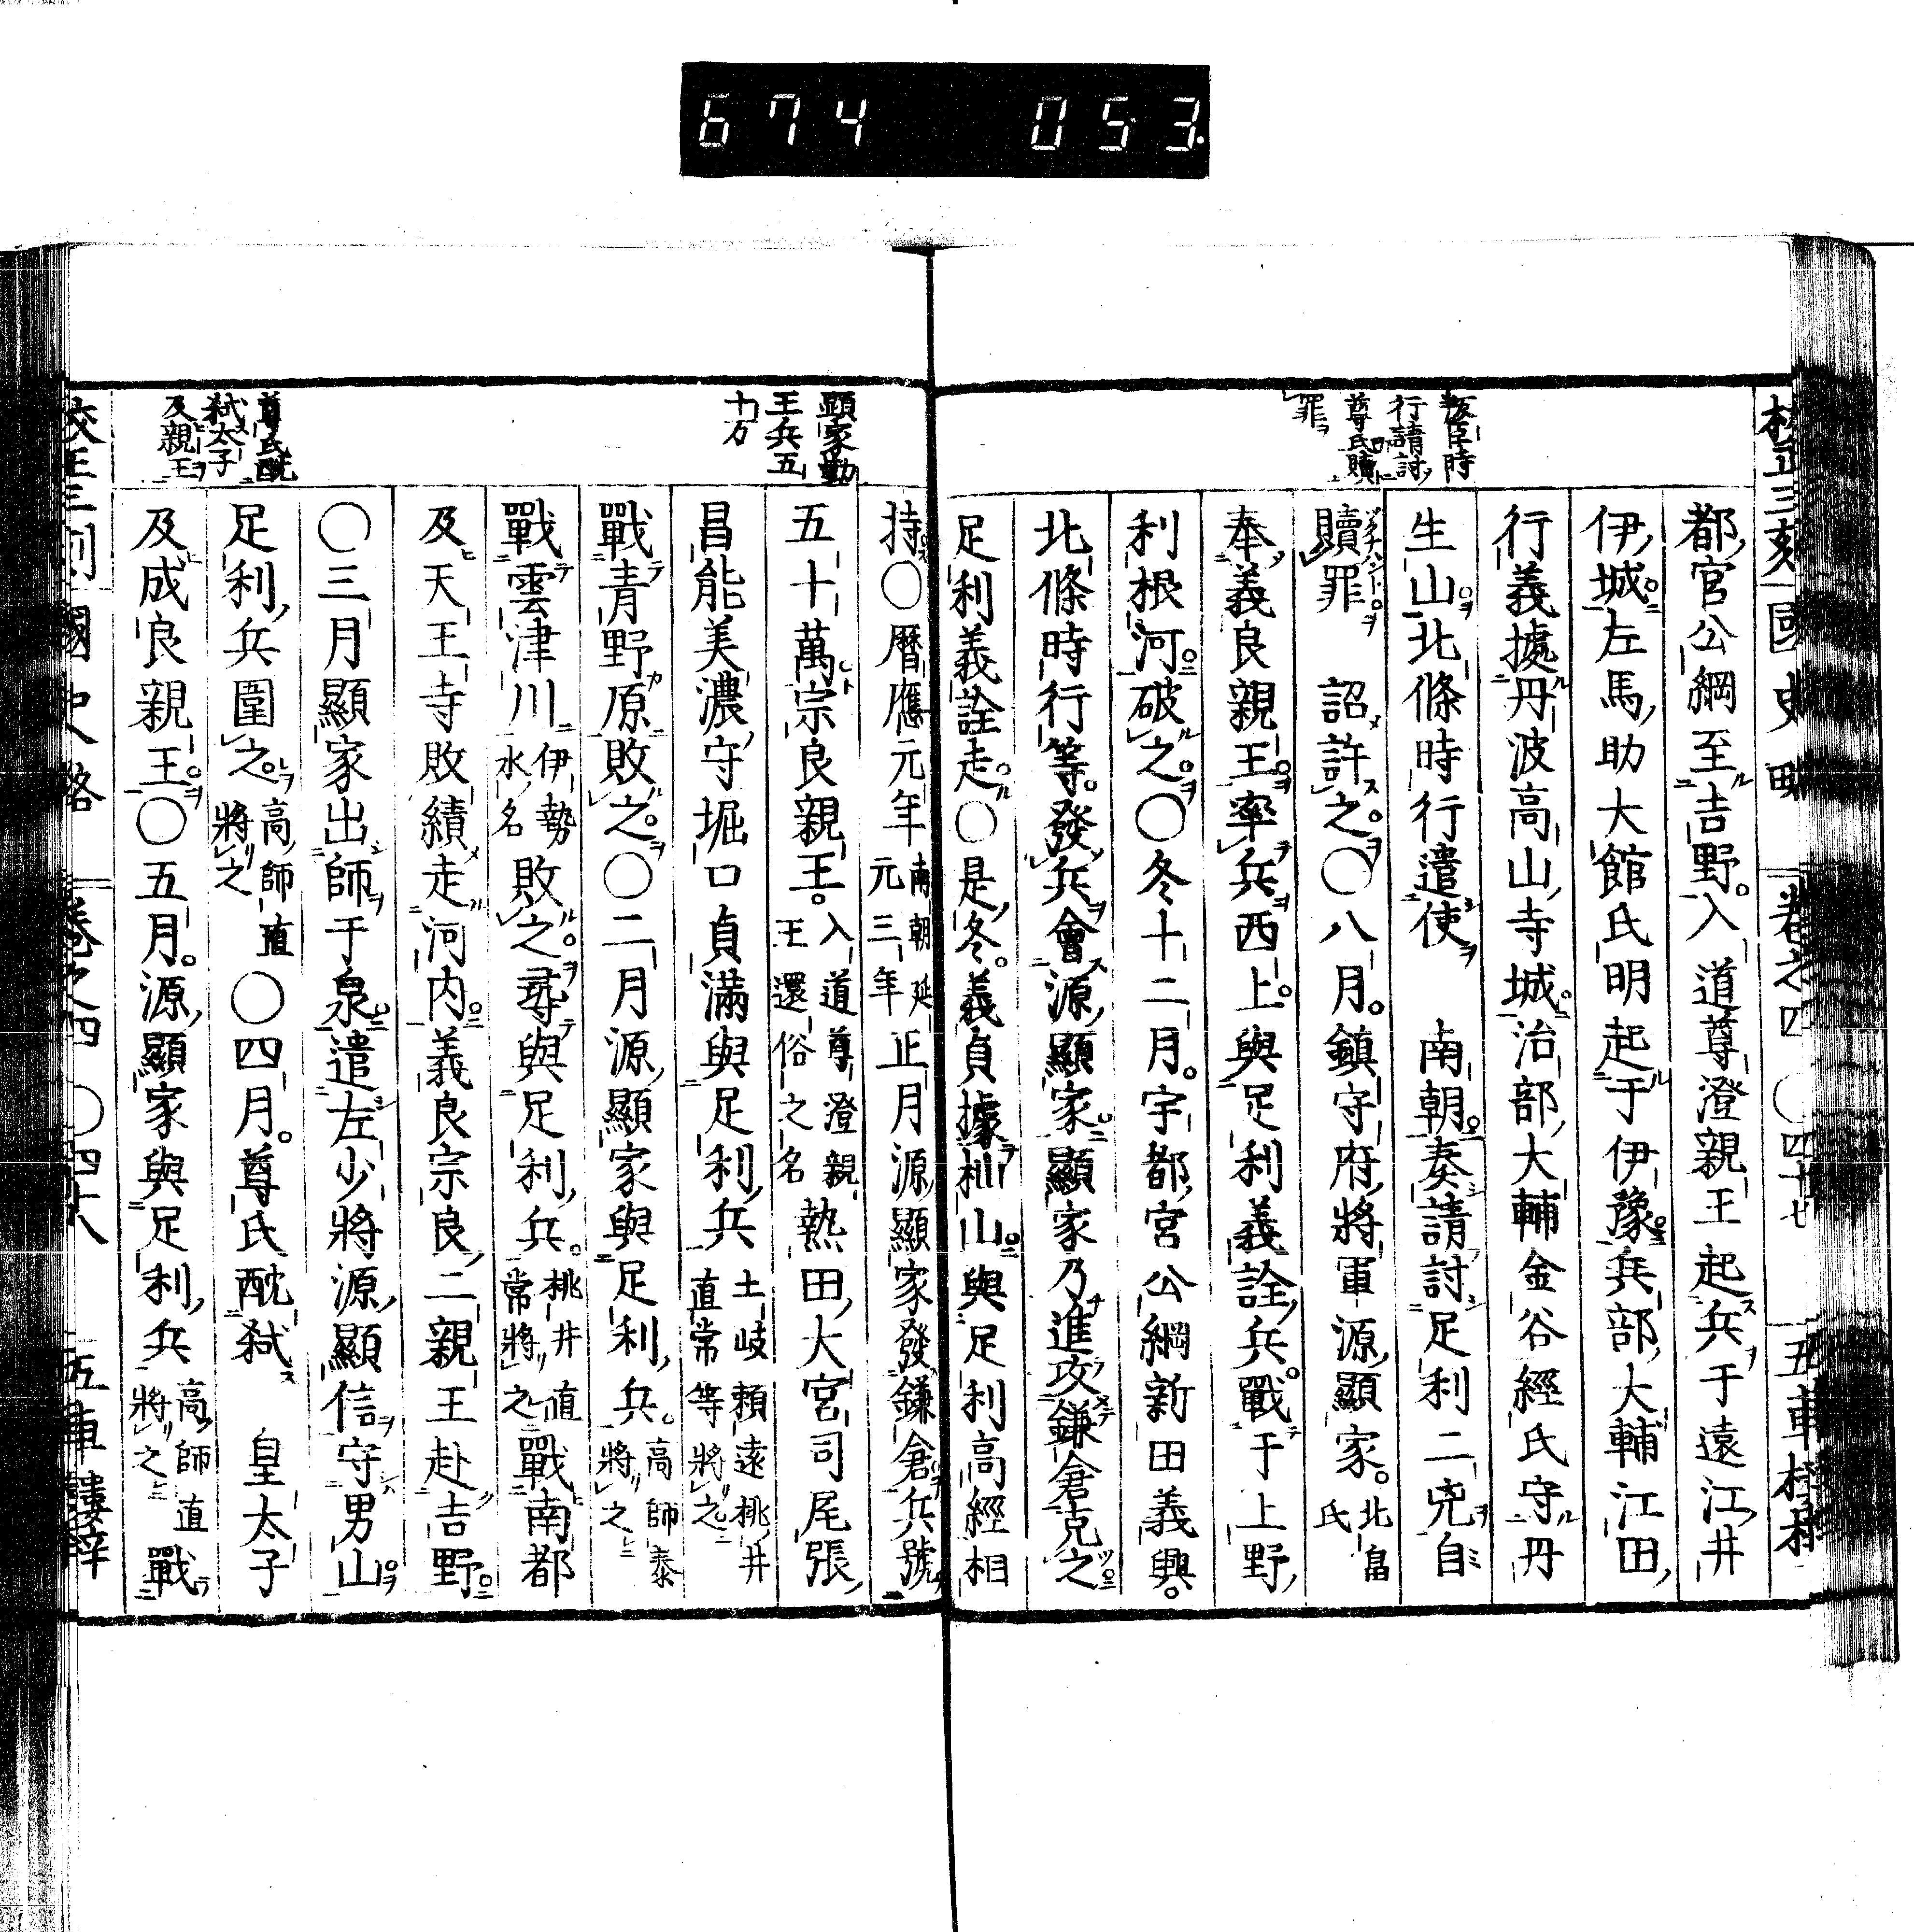 674 053
校正三刻國史畧 卷之四 ○四十七 五車樓梓
叛臣時
行請討
尊氏贖
罪
都官公綱至吉野。入道尊澄親王起兵于遠江井
伊城。左馬助大館氏明起于伊豫。兵部大輔江田
行義據丹波高山寺城。治部大輔金谷經氏守丹
生山。北條時行遣使 南朝。奏請討足利二兇自
贖罪 詔許之。○八月。鎮守府將軍源顯家。北畠氏
奉義良親王。率兵西上。與足利義詮兵。戰于上野
利根河。破之。○冬十二月。宇都宮公綱新田義興。
北條時行等。發兵會源顯家。顯家乃進攻鎌倉克之
足利義詮走。○是冬。義貞據杣山。與足利高經相
顯家勤
王兵五
十万
持。○曆應元年南朝延元三年正月源顯家發鎌倉兵號
五十萬宗良親王。入道尊澄親王還俗之名熱田大宮司尾張
昌能美濃守堀口貞滿與足利兵土岐頼遠桃井直常等將之
戰青野原敗之。○二月源顯家與足利兵。高師泰將之
戰雲津川伊勢水名敗之。尋與足利兵。桃井直常將之戰南都
及天王寺敗績走河内。義良宗良二親王赴吉野。
○三月顯家出師于泉。遣左少將源顯信守男山。
足利兵圍之。高師直將之○四月。尊氏酖弑 皇太子
及成良親王。○五月。源顯家與足利兵高師直將之戰
尊氏酖
弑太子
及親王
校正三刻國史畧 卷之四 ○四十八 五車樓梓